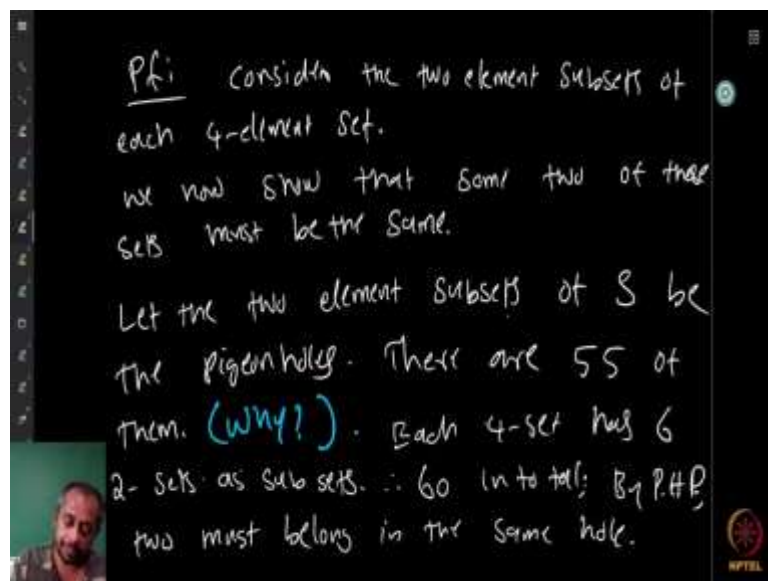 Pf: Consider the two element subsets of
each 4-element set.
We now show that some two of these
sets must be the same.
Let the two element subsets of S be
the pigeonholes. There are 55 of
them. (Why?). Each 4-set has 6
2-sets as subsets. ∴ 60 in total; By P.H.P,
two must belong in the same hole.
NPTEL